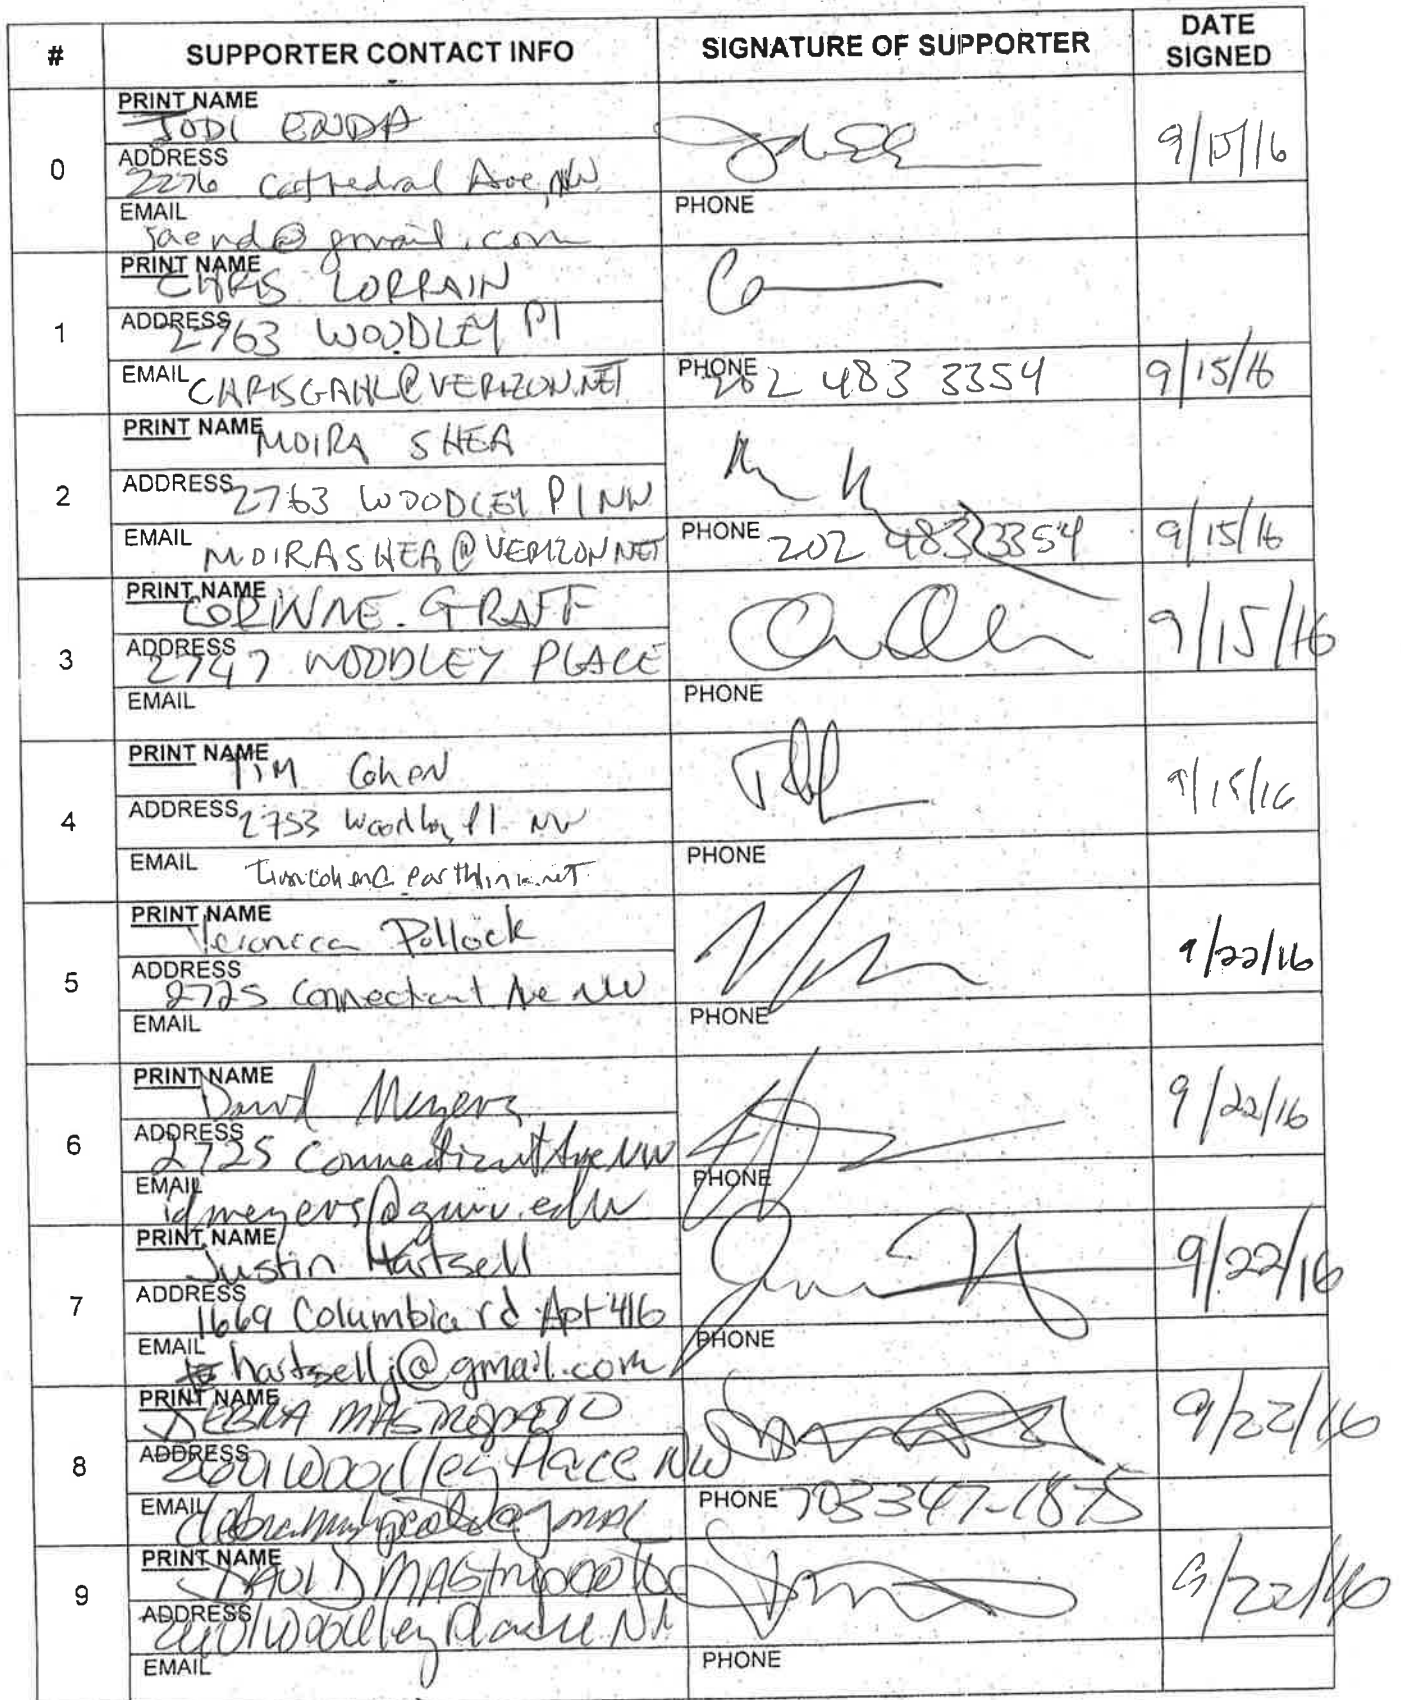 # SUPPORTER CONTACT INFO SIGNATURE OF SUPPORTER DATE SIGNED
0
PRINT NAME JODI ENDA
9/15/16
ADDRESS 2276 Cathedral Ave, NW
EMAIL jaend@gmail.com
PHONE
1
PRINT NAME CHRIS LORRAIN
ADDRESS 2763 WOODLEY Pl
EMAIL CHRISGAHL@VERIZON.NET
PHONE 202 483 3354
9/15/16
2
PRINT NAME MOIRA SHEA
ADDRESS 2763 WOODLEY Pl NW
EMAIL MOIRASHEA@VERIZON NET
PHONE 202 483 3354
9/15/16
3
PRINT NAME CORINNE. GRAFF
9/15/16
ADDRESS 2747 WOODLEY PLACE
EMAIL
PHONE
4
PRINT NAME TIM Cohen
9/15/16
ADDRESS 2753 Woodley Pl. NW
EMAIL timcohen@earthlink.net
PHONE
5
PRINT NAME Veronica Pollock
9/22/16
ADDRESS 2725 Connecticut Ave NW
EMAIL
PHONE
6
PRINT NAME David Meyers
9/22/16
ADDRESS 2725 Connecticut Ave NW
EMAIL idmeyers@gwu.edu
PHONE
7
PRINT NAME Justin Hartsell
9/22/16
ADDRESS 1669 Columbia rd Apt 416
EMAIL hartsellj@gmail.com
PHONE
8
PRINT NAME DEBRA MASTROPATO
9/22/16
ADDRESS 2601 Woodley Place NW
EMAIL
PHONE 703 347-1875
9
PRINT NAME DAVID
9/22/16
ADDRESS 2601 Woodley Place NW
EMAIL
PHONE